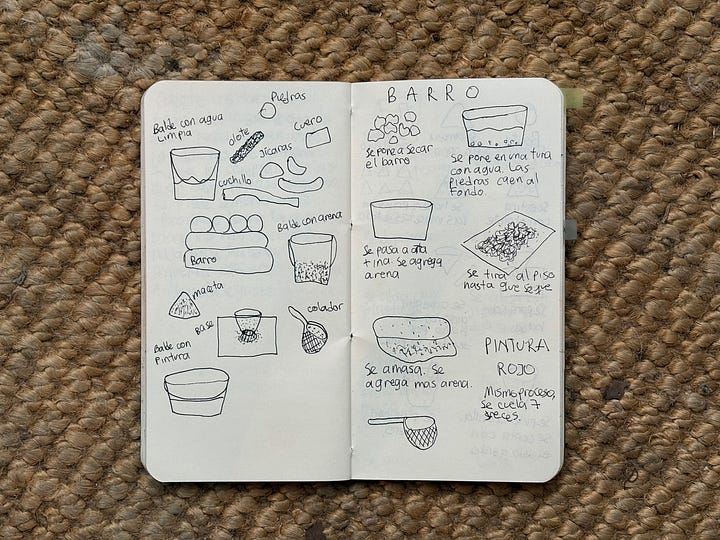 Piedras
Balde con agua
Limpia
olote
cuero
Jícaras
cuchillo
Balde con arena
Barro
maceta
Base
colador
Balde con
Pintura
BARRO
Se pone a secar
el barro
Se pone en una tina
con agua. Las
piedras caen al
fondo.
Se pasa a otra
tina. Se agrega
arena
Se tira al piso
hasta que seque
Se amasa. Se
agrega mas arena.
PINTURA
ROJO
Mismo proceso,
se cuela 7
veces.